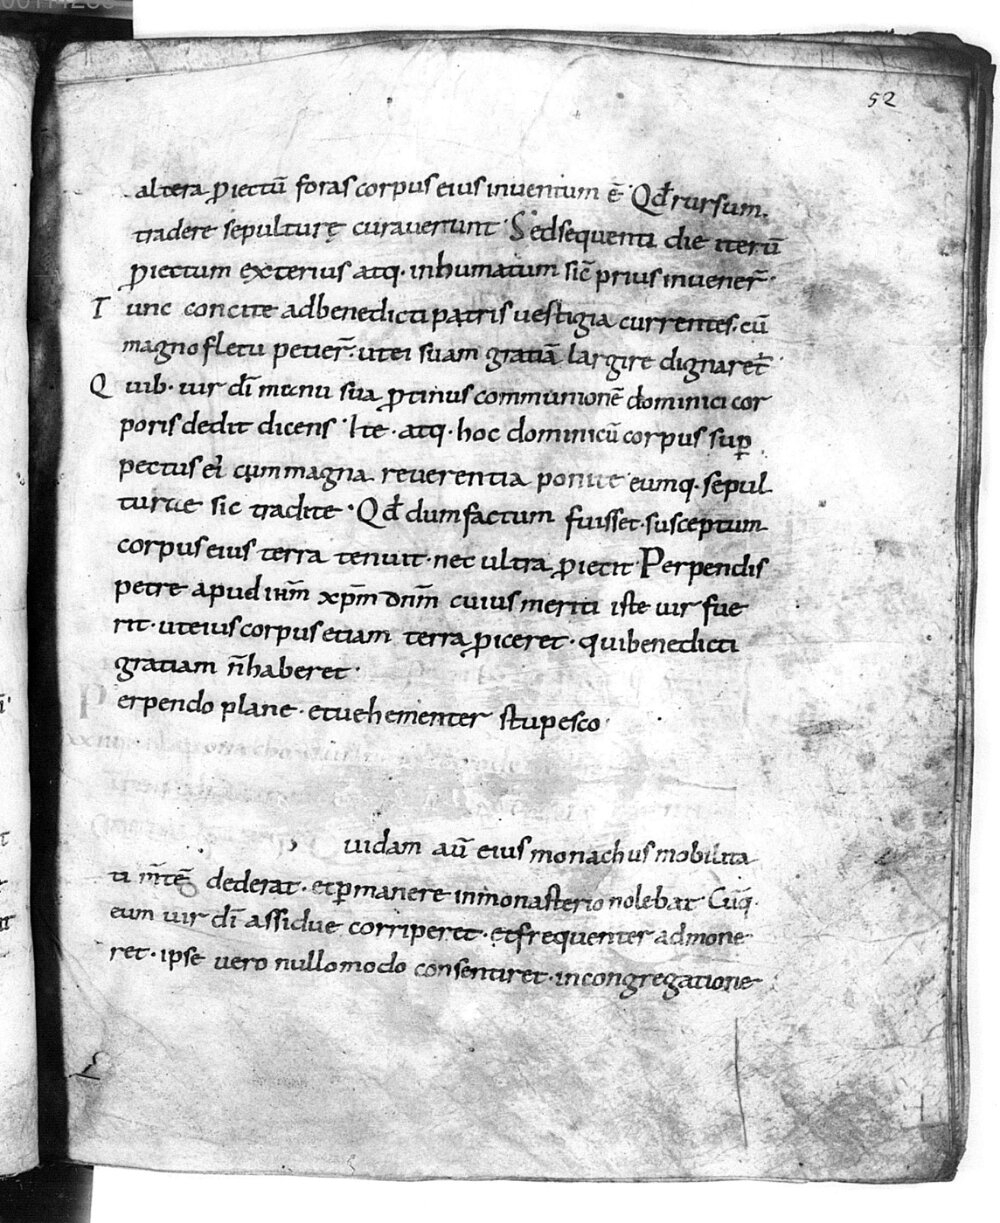 52
altera ꝓiectū foras corpus eius inventum ē Qđ rursum.
tradere sepulturę curaverunt · Sed sequenti die iterū
ꝓiectum exterius atq· inhumatum sic̄ prius invener̄·
Tunc concite ad benedicti patris vestigia currentes, cū
magno fletu petier̄· ut ei suam gratiā largire dignaret̄
Quib· vir dī manu sua ꝓtinus communionē dominici cor
poris dedit dicens · Ite · atq· hoc dominicū corpus suꝑ
pectus ei cum magna reverentia ponite eumq· sepul
turae sic tradite · Qđ dum factum fuisset · susceptum
corpus eius terra tenuit · nec ultra ꝓiecit · Perpendis
petre apud iħm xp̄m dn̄m cuius meriti iste vir fue
rit · ut eius corpus etiam terra ꝓiceret · qui benedicti
gratiam n̄ haberet ·
Perpendo plane · et vehementer stupesco ·
uidam aū eius monachus mobilita
ti m̄tē dederat · et ꝑmanere in monasterio nolebat · Cūq·
eum vir dī assidue corriperet · et frequenter admone
ret · ipse vero nullo modo consentiret · in congregatione